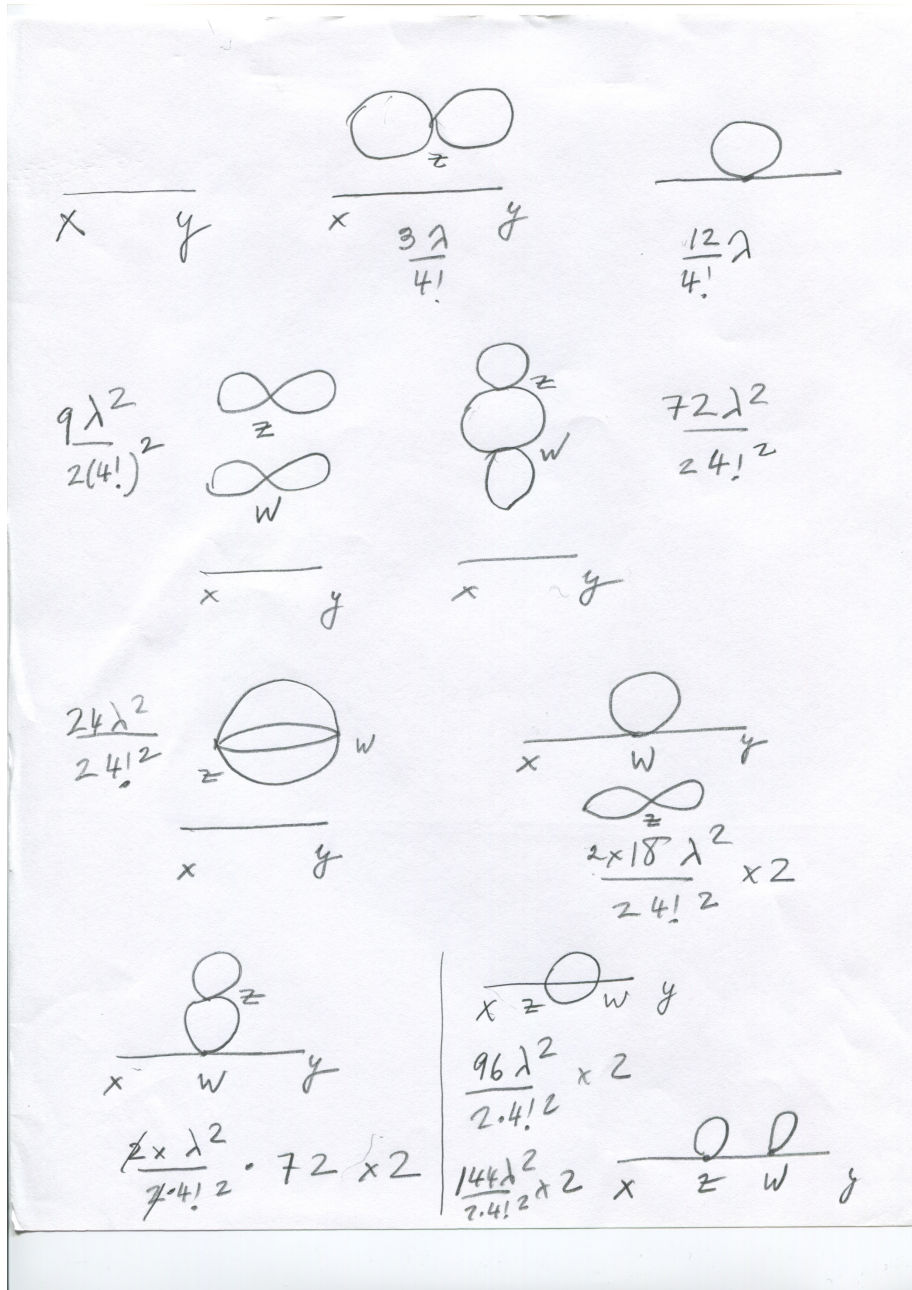 z
x y x y
3λ/4!
12/4! λ
9λ²/2(4!)²
z
w
x y
z
w
x y
72λ²/2 4!²
24λ²/2 4!²
z w
x y
x w y
z
2x18 λ²/2 4!² x2
z
x w y
2x λ²/2·4!² · 72 x2
x z w y
96λ²/2·4!² x 2
144λ²/2·4!² x 2
x z w y